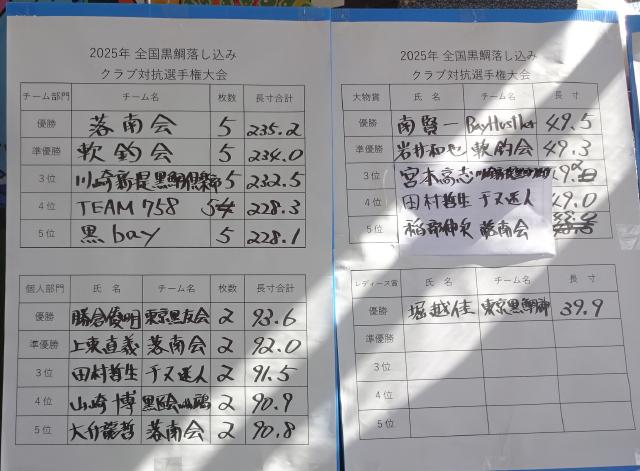 2025年 全国黒鯛落し込み
クラブ対抗選手権大会
チーム部門 チーム名 枚数 長寸合計
優勝 落南会 5 235.2
準優勝 軟釣会 5 234.0
3位 川崎新堤黒鯛倶楽部 5 232.5
4位 TEAM 758 4 228.3
5位 黒bay 5 228.1
個人部門 氏 名 チーム名 枚数 長寸合計
優勝 勝倉俊明 東京黒友会 2 93.6
準優勝 上東直義 落南会 2 92.0
3位 田村哲生 チヌ迷人 2 91.5
4位 山崎 博 2 90.9
5位 龍哲 落南会 2 90.8
2025年 全国黒鯛落し込み
クラブ対抗選手権大会
大物賞 氏 名 チーム名 長 寸
優勝 南賢一 BayHustler 49.5
準優勝 岩井和也 軟釣会 49.3
3位 宮本高志
4位 田村哲生 チヌ迷人 49.0
5位 落南会
レディース賞 氏 名 チーム名 長 寸
優勝 堀越佳 東京黒鯛師 39.9
準優勝
3位
4位
5位